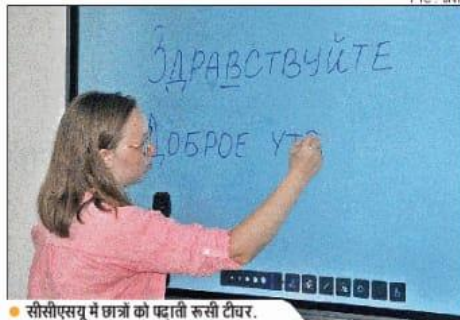 ЗДРАВСТВУЙТЕ
ДОБРОЕ УТР
सीसीएसयू में छात्रों को पढ़ाती रूसी टीचर.